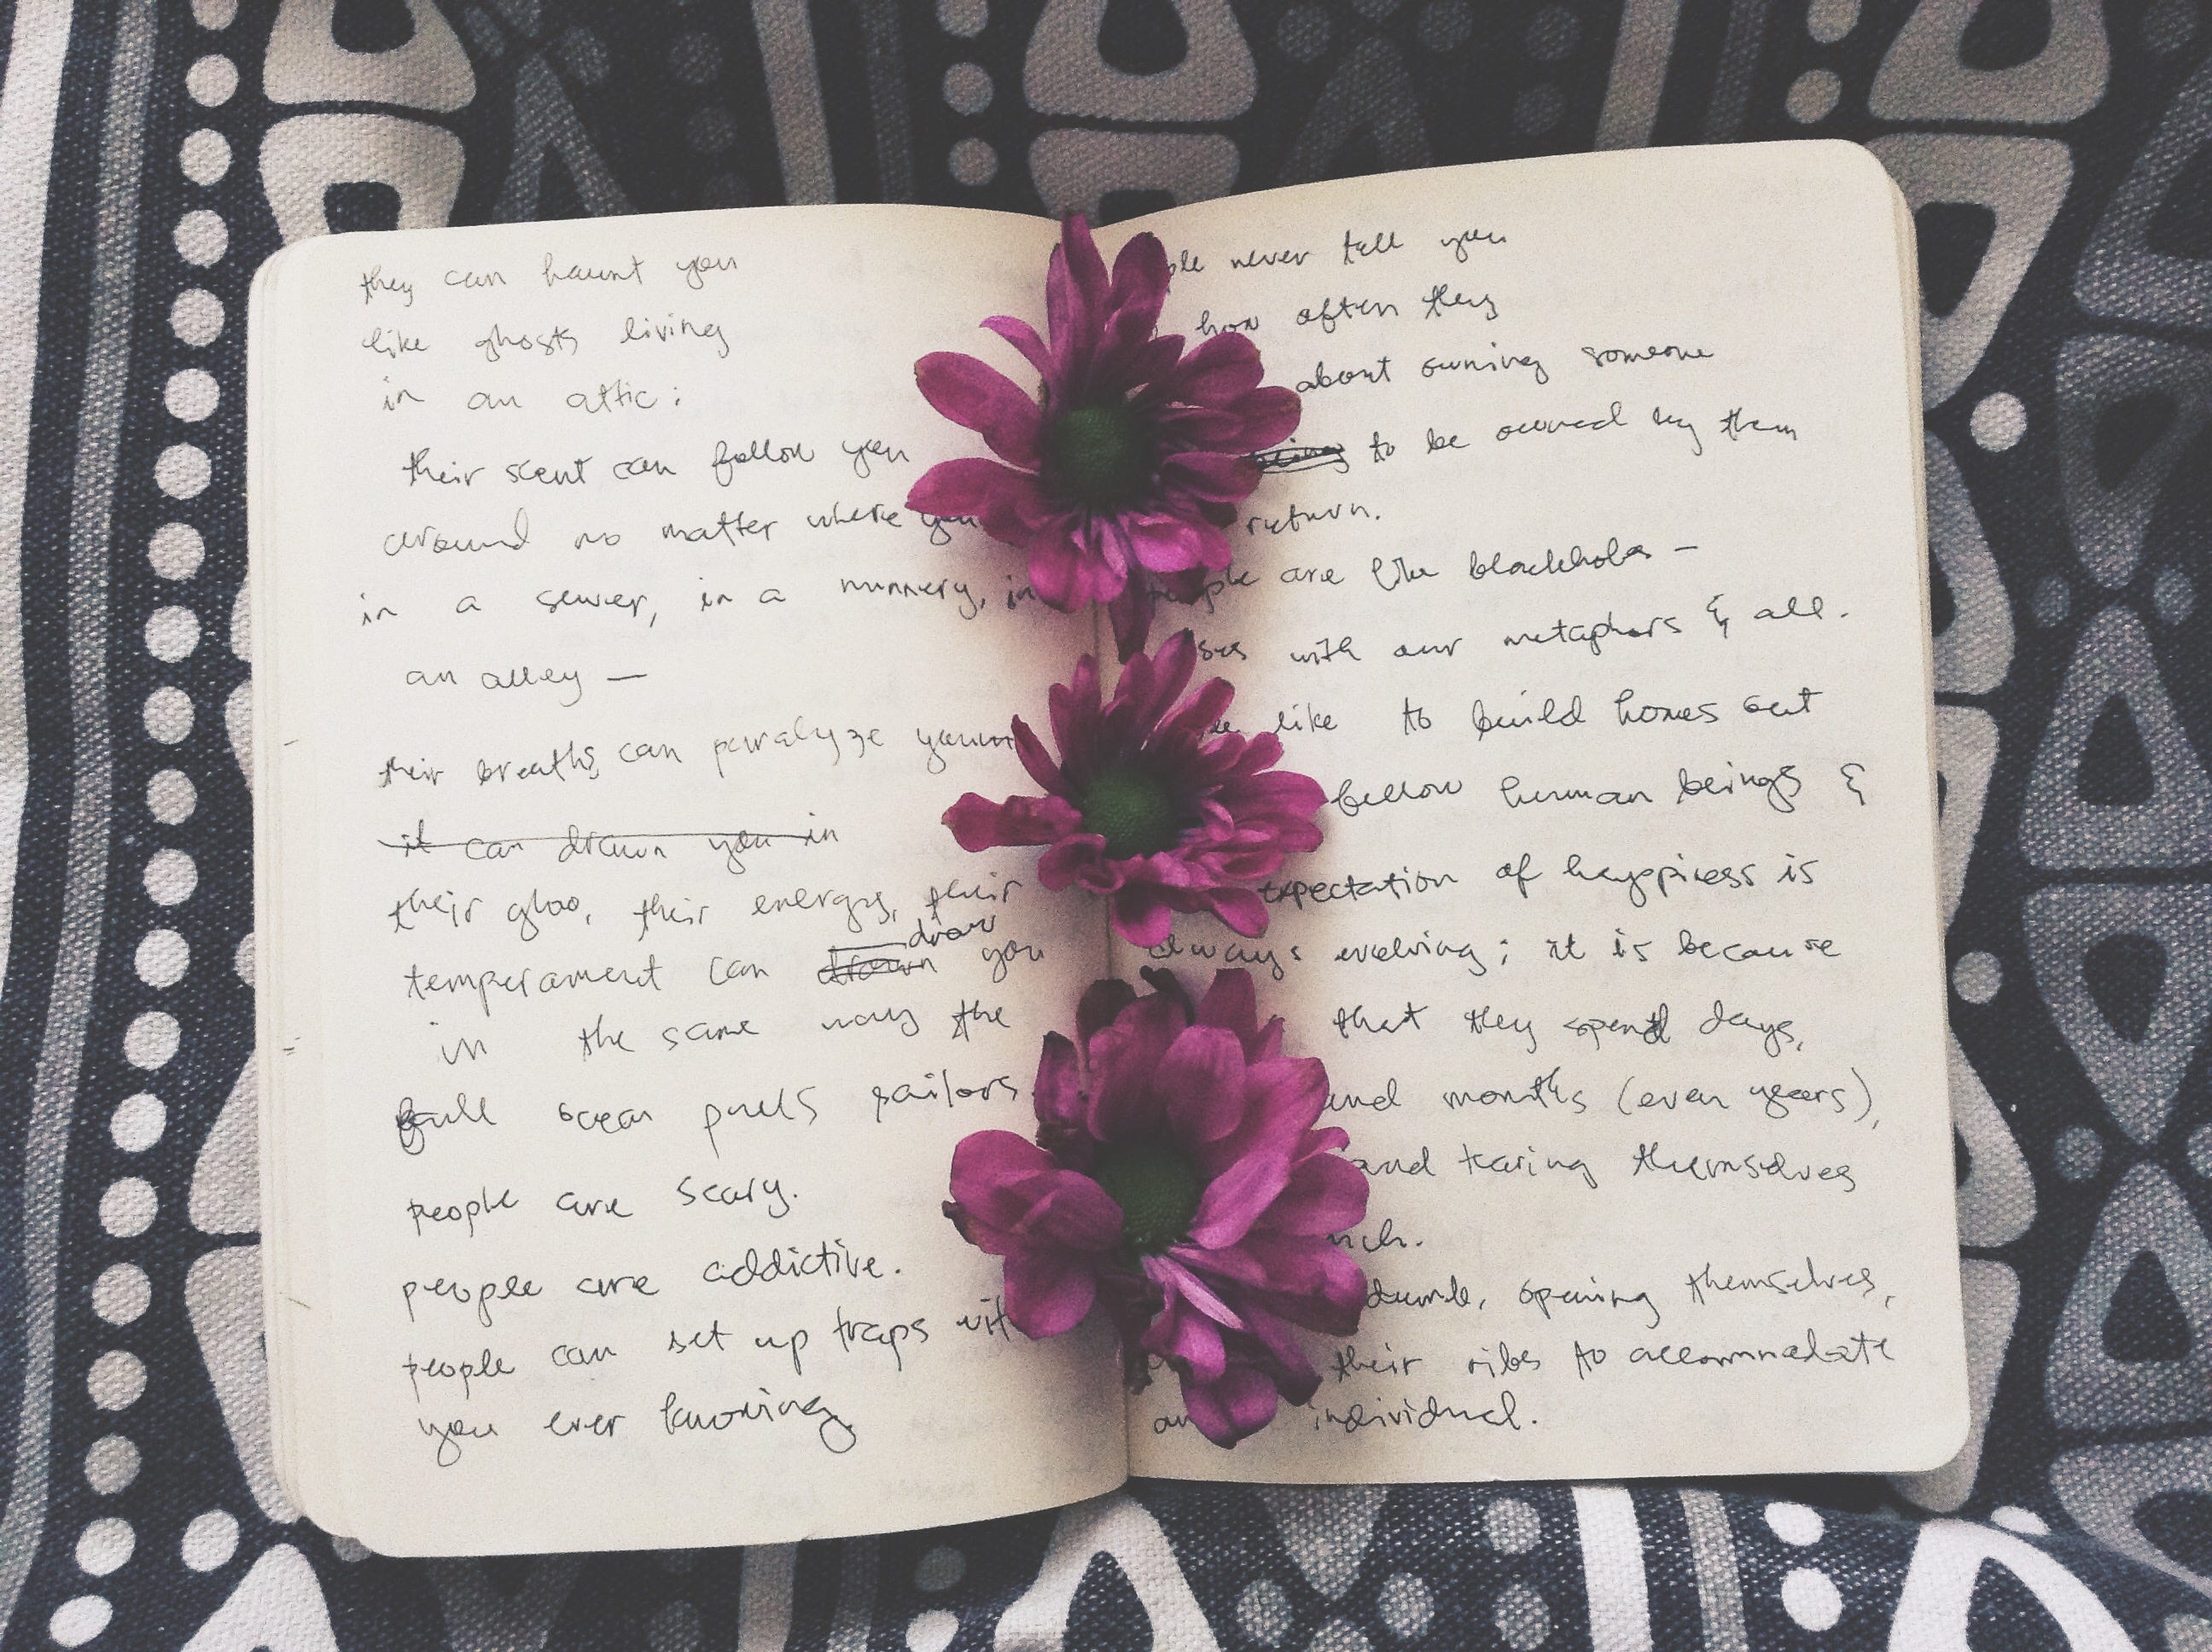 they can haunt you
like ghosts living
in an attic:
their scent can follow you
around no matter where you
in a sewer, in a nunnery, in
an alley —
their breaths can paralyze
it can drawn you in
their glow, their energy, their
temperament can drawn draw you
in the same way the
full ocean pulls sailors.
people are scary.
people are addictive.
people can set up traps
you ever knowing
never tell you
how often they
about owning someone
to be owned by them
return.
people are like blackholes —
with our metaphors & all.
like to build homes out
fellow human beings &
expectation of happiness is
always evolving; it is because
that they spend days,
and months (even years),
and tearing themselves
dumb, opening themselves,
their ribs to accommodate
individual.